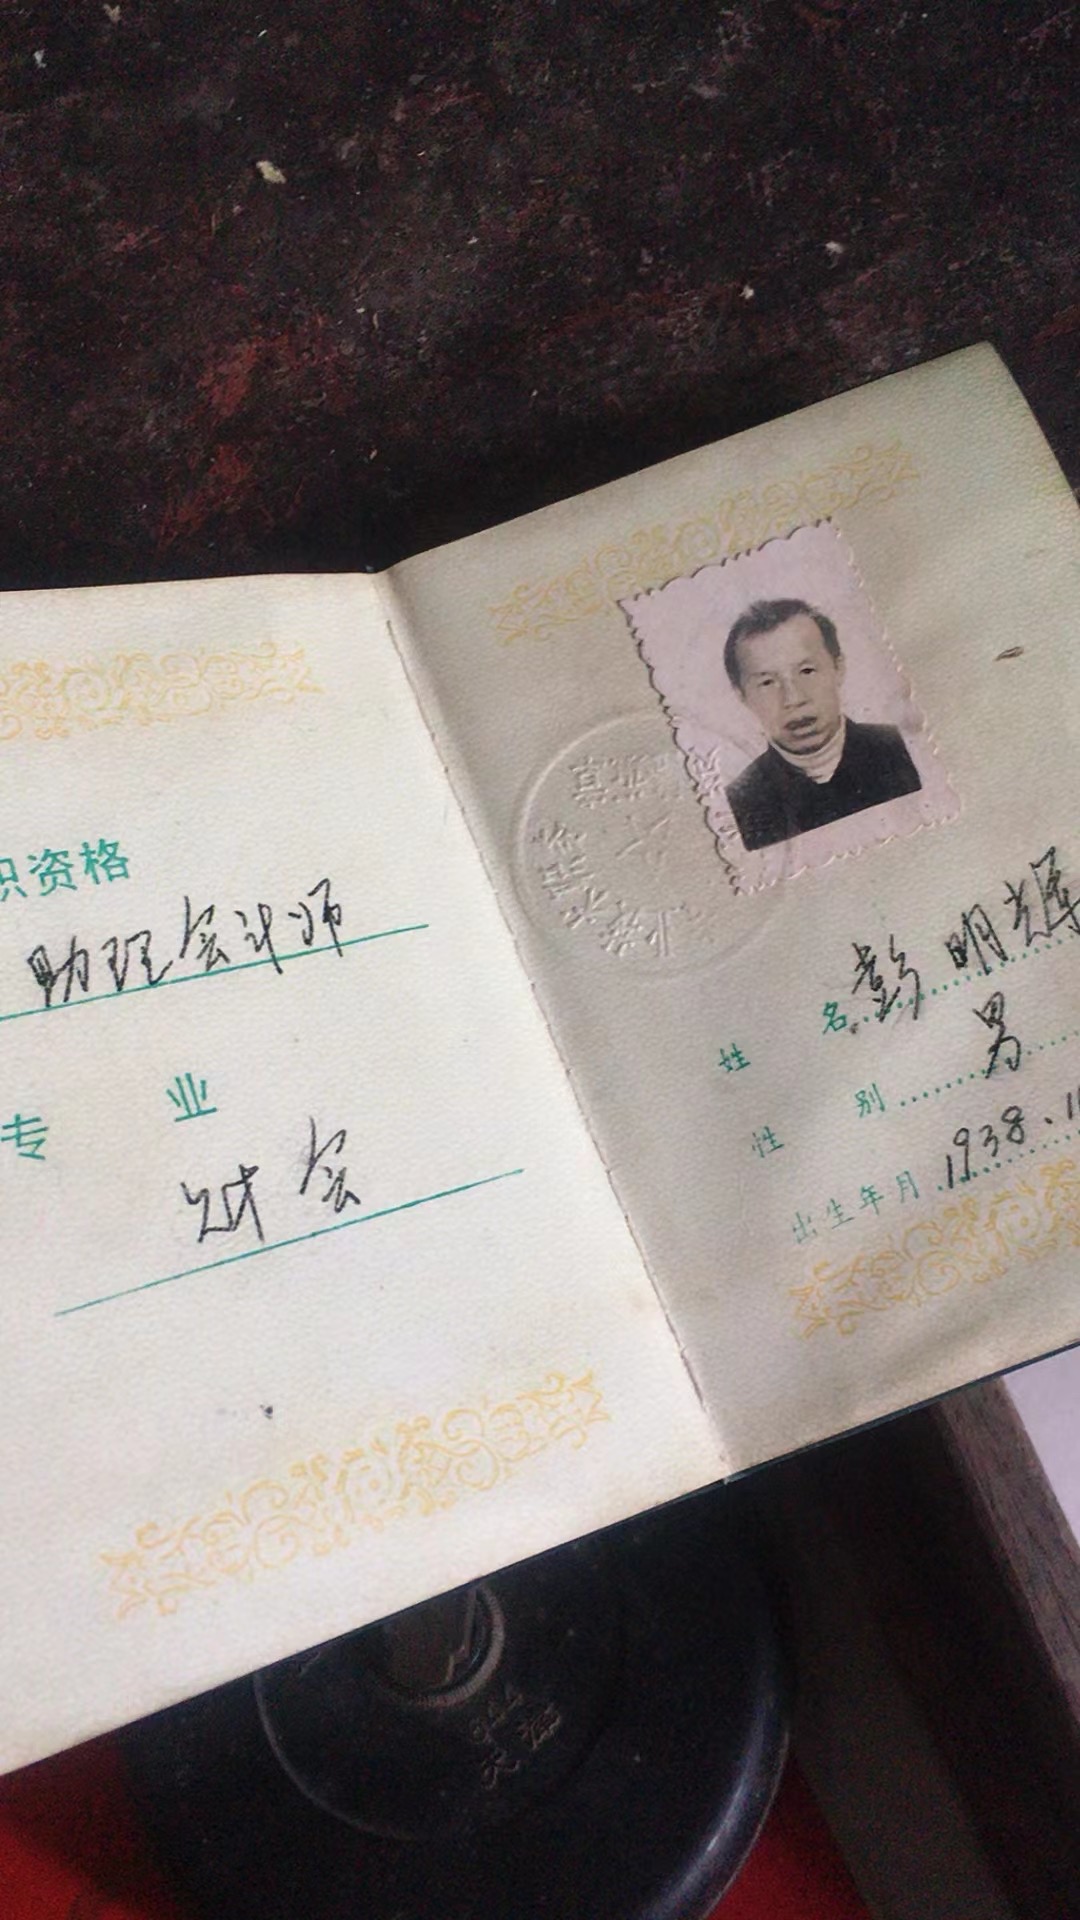 职资格
助理会计师
专 业
财会
姓 名 彭明辉
性 别 男
出生年月 1938.11